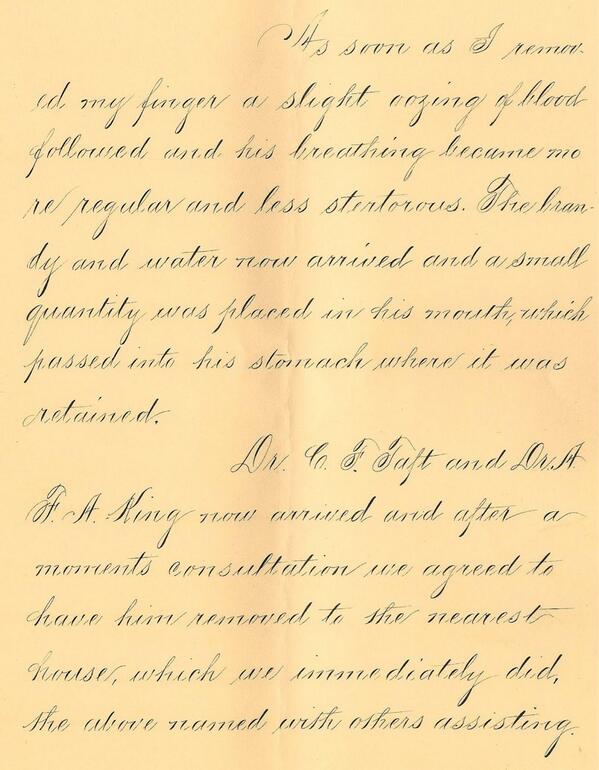 As soon as I remov-
ed my finger a slight oozing of blood
followed and his breathing became mo
re regular and less stertorous. The bran-
dy and water now arrived and a small
quantity was placed in his mouth, which
passed into his stomach where it was
retained.
Dr. C. F. Taft and Dr. A
F. A. King now arrived and after a
moments consultation we agreed to
have him removed to the nearest
house, which we immediately did,
the above named with others assisting.